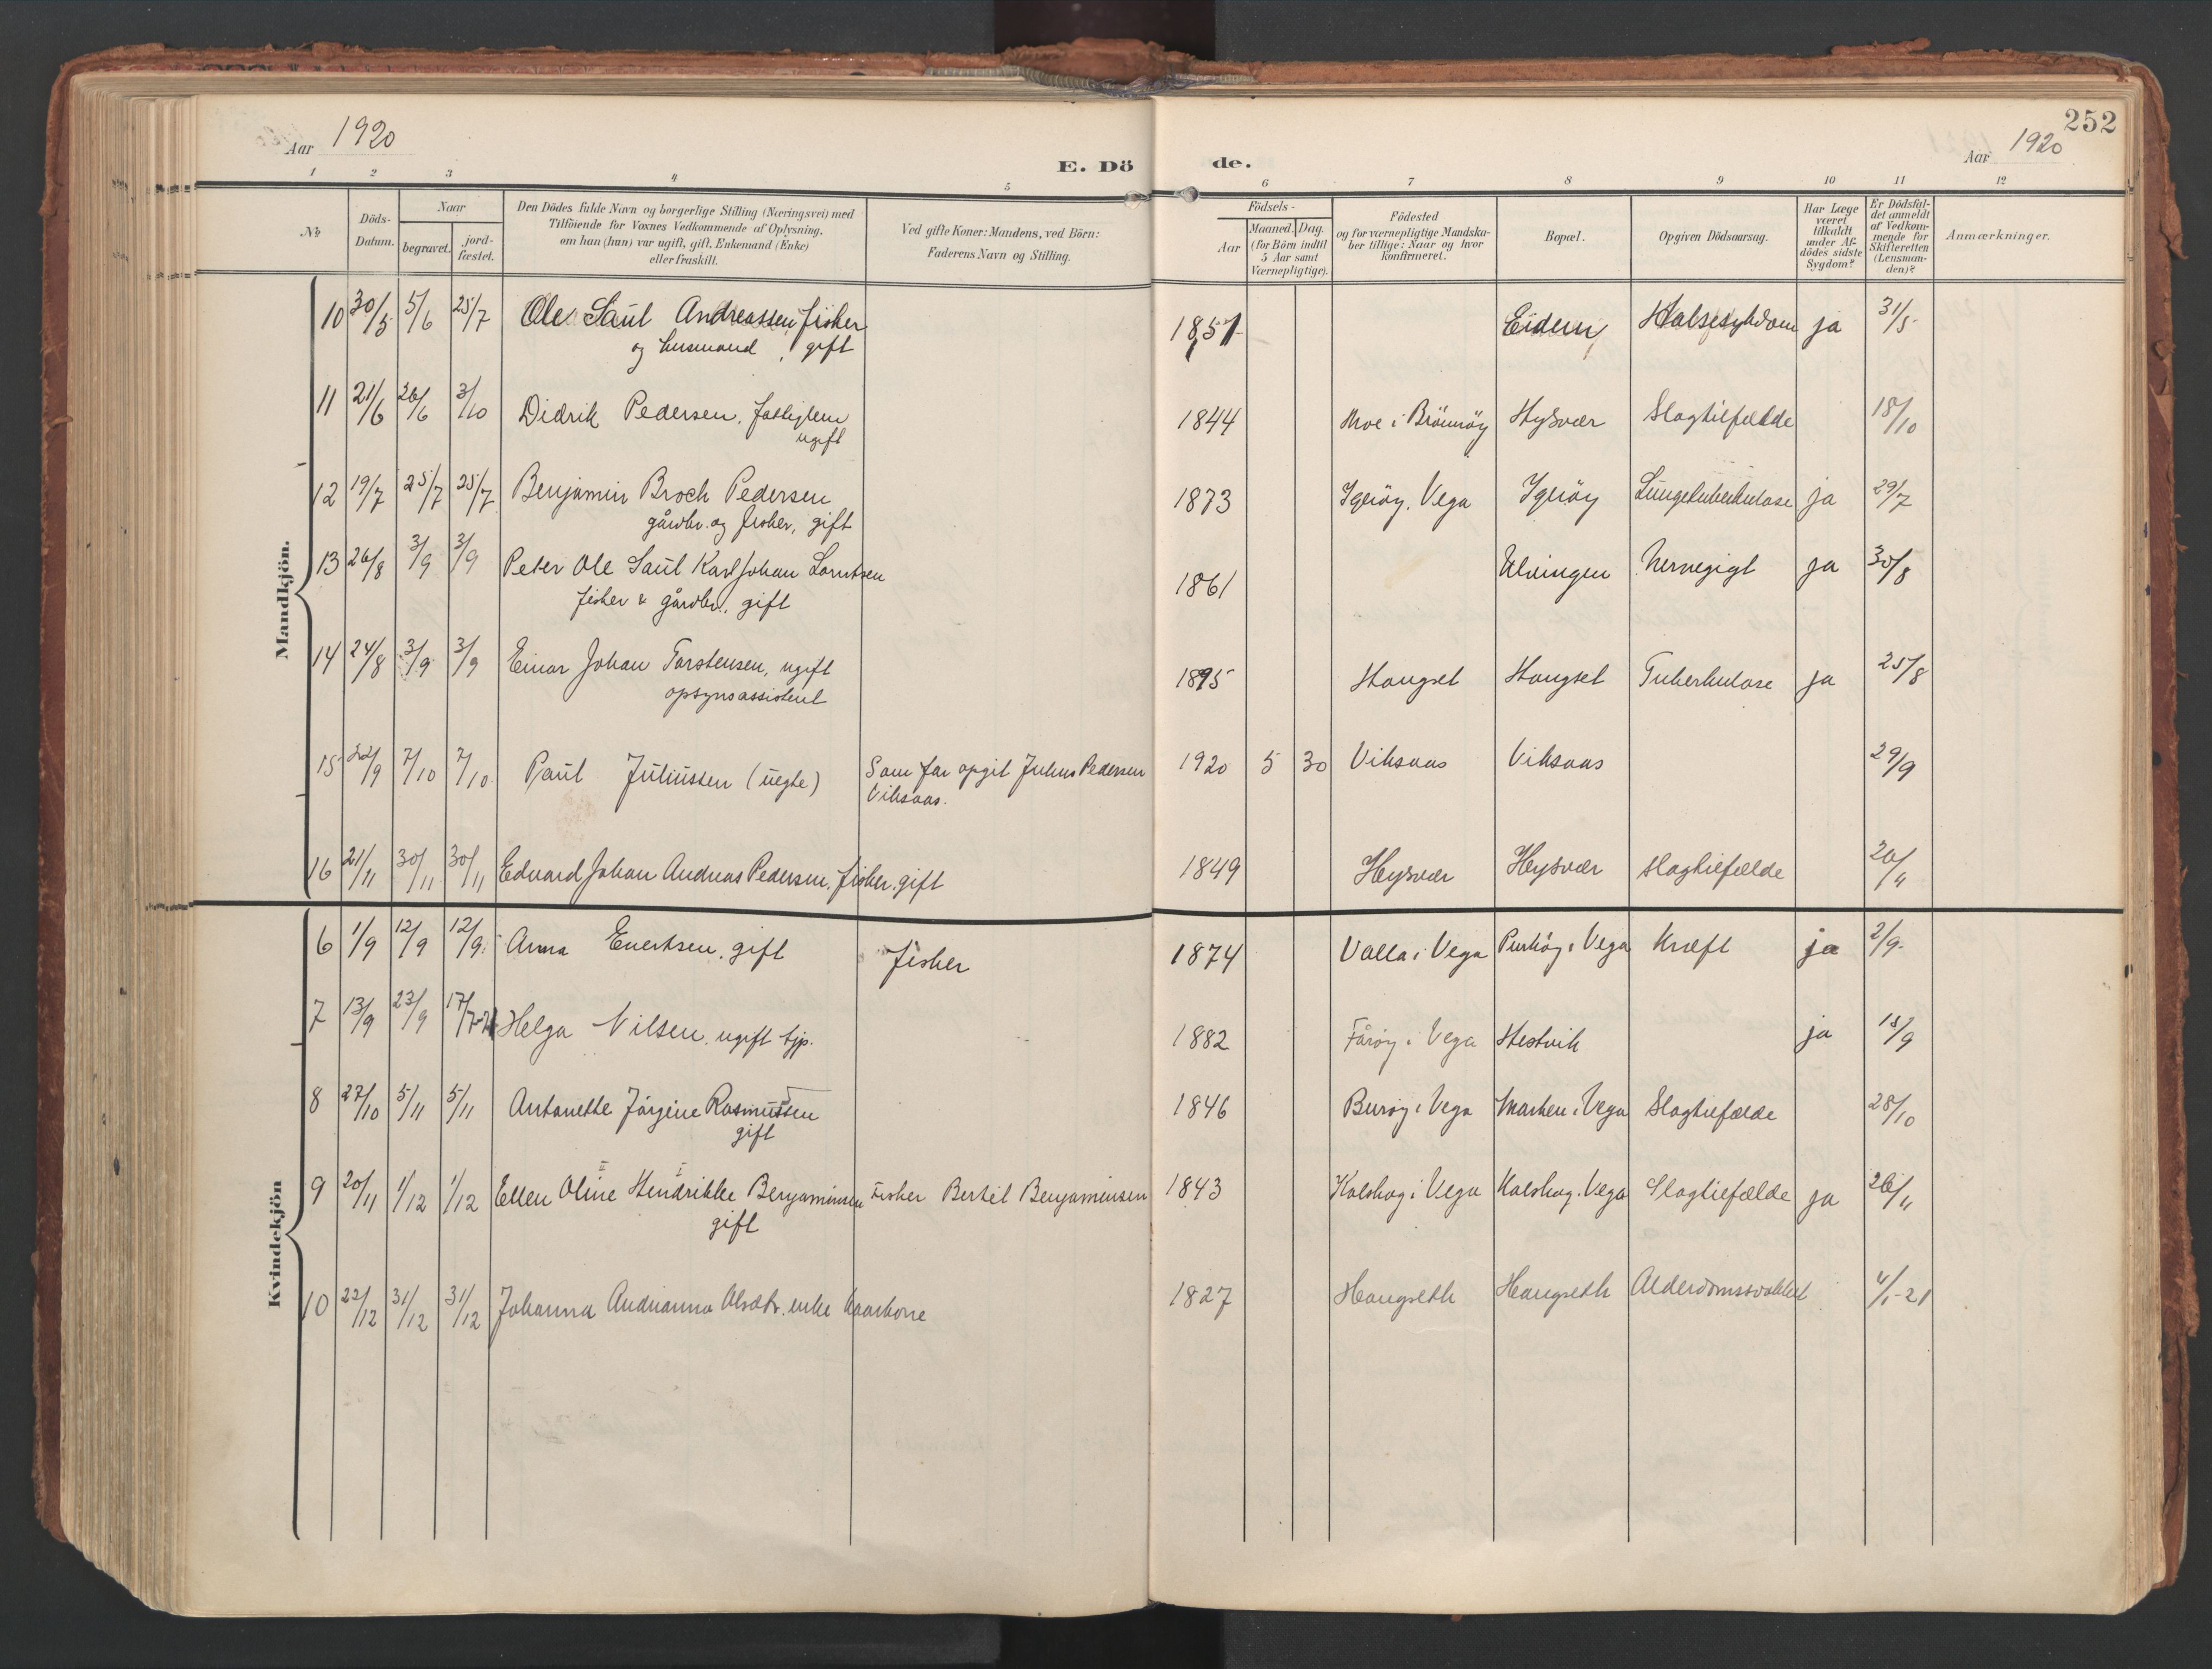 252
Aar 1920
E. Dö de.
Aar 1920
1 2 3 4 5 6 7 8 9 10 11 12
No
Döds-
Datum.
Naar
begravet.
jord-
fæstet.
Den Dödes fulde Navn og borgerlige Stilling (Næringsvei) med
Tilföiende for Voxnes Vedkommende af Oplysning,
om han (hun) var ugift, gift, Enkemand (Enke)
eller fraskilt.
Ved gifte Koner: Mandens, ved Börn:
Faderens Navn og Stilling.
Födsels-
Aar
Maaned. Dag.
(for Börn indtil
5 Aar samt
Værnepligtige).
Födested
og for værnepligtige Mandska-
ber tillige: Naar og hvor
konfirmeret.
Bopæl.
Opgiven Dödsaarsag.
Har Læge
været
tilkaldt
under Af-
dödes sidste
Sygdom?
Er Dödsfal-
det anmeldt
af Vedkom-
mende for
Skifteretten
(Lensman-
den)?
Anmærkninger.
Mandkjön.
10 30/5 5/6 25/7 Ole Saul Andreassen, fisker 1857 Eidem Halsesykdom ja 31/5
og husmand, gift
11 21/6 26/6 3/10 Didrik Pedersen, fattiglem 1844 Moe i Brönnöy Hysvær Slagtilfælde 15/10
ugift
12 19/7 25/7 25/7 Benjamin Broch Pedersen 1873 Igeröy, Vega Igeröy Lungetuberkulose ja 29/7
gårdbr. og fisker, gift
13 26/8 3/9 3/9 Peter Ole Saul Karl Johan Lorntsen 1861 Ulvingen Nervegigt ja 30/8
fisker & gårdbr., gift
14 24/8 3/9 3/9 Einar Johan Torstensen, ugift 1895 Hongset Hongset Tuberkulose ja 25/8
opsynsassistent
15 22/9 7/10 7/10 Paul Juliussen (uegte) Som far opgit Julius Pedersen 1920 5 30 Viksaas Viksaas 29/9
Viksaas.
16 21/11 30/11 30/11 Edvard Johan Andreas Pedersen, fisker, gift 1849 Hysvær Hysvær Slagtilfælde 26/11
Kvindekjön
6 1/9 12/9 12/9 Anna Evertsen, gift fisker 1874 Valla i Vega Purköy i Vega Kræft ja 2/9
7 13/9 23/9 17/7-21 Helga Nilsen, ugift tjp. 1882 Faröy i Vega Hestvik ja 15/9
8 27/10 5/11 5/11 Antonette Jörgine Rasmussen 1846 Buröy i Vega Marken i Vega Slagtilfælde 28/10
gift
9 20/11 1/12 1/12 Ellen Oline Hendrikke Benjaminsen Fisker Bertil Benjaminsen 1843 Kalskag i Vega Kalskag, Vega Slagtilfælde ja 26/11
gift
10 22/12 31/12 31/12 Johanna Andrianna Olsdtr. enke kaarkone 1827 Hongseth Hongseth Alderdomssvakhet 4/1-21